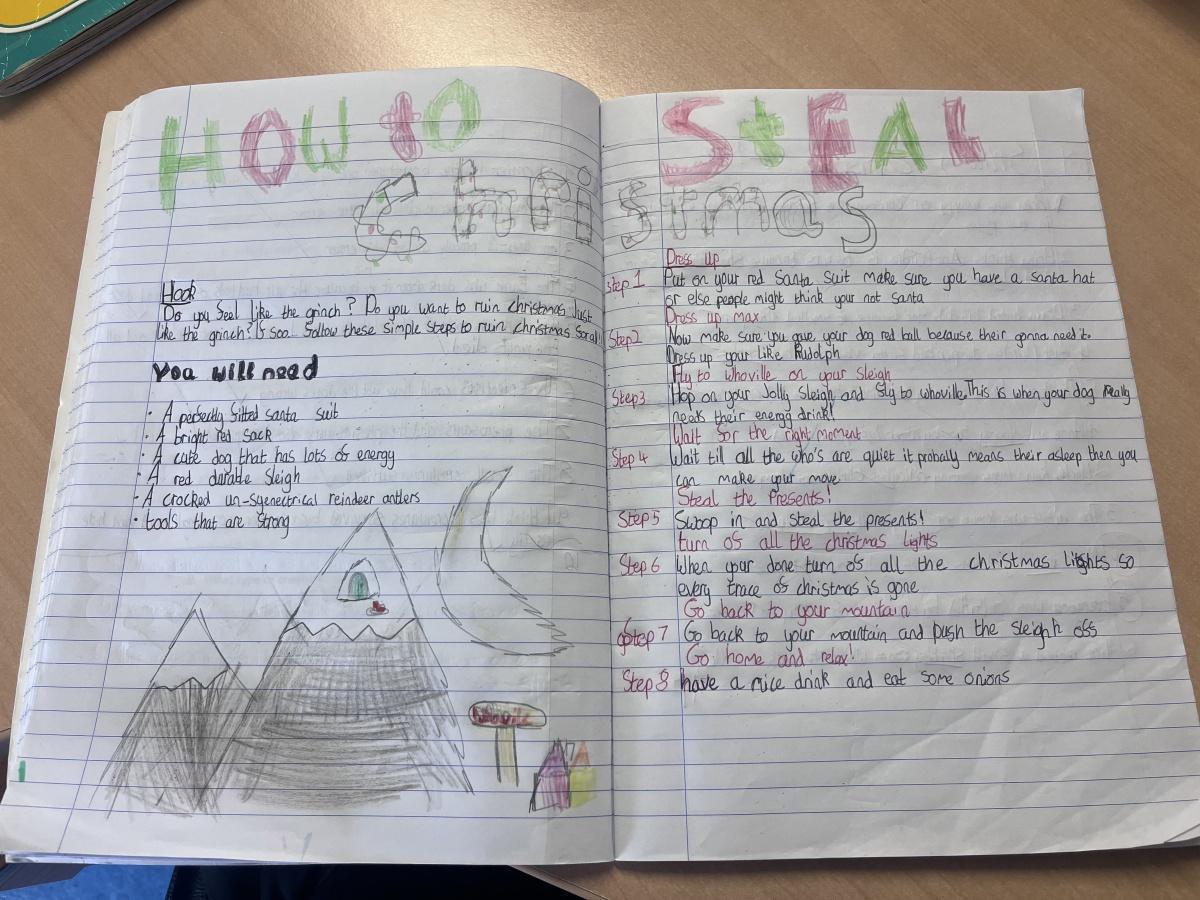 HOW to STEAL
Christmas
Hook
Do you feel like the grinch? Do you want to ruin christmas Just
like the grinch? If soo... follow these simple steps to ruin christmas
You will need
· A perfectly fitted santa suit
· A bright red sack
· A cute dog that has lots of energy
· A red durable sleigh
· A crocked un-syenectrical reindeer antlers
· tools that are strong
Dress up
step 1 Put on your red Santa suit make sure you have a santa hat
or else people might think your not santa
Dress up max
Step2 Now make sure you give your dog red ball because their gonna need it
Dress up your like Rudolph
Fly to whoville on your sleigh
Step3 Hop on your Jolly Sleigh and fly to whoville. This is when your dog Really
needs their energy drink!
Wait for the right moment
Step 4 Wait till all the who's are quiet it probally means their asleep then you
can make your move
Steal the Presents!
Step 5 Swoop in and steal the presents!
turn of all the christmas lights
Step 6 When your done turn of all the christmas lights so
every trace of christmas is gone
Go back to your mountain
Step 7 Go back to your mountain and push the sleigh off
Go home and relax!
Step 8 have a nice drink and eat some onions